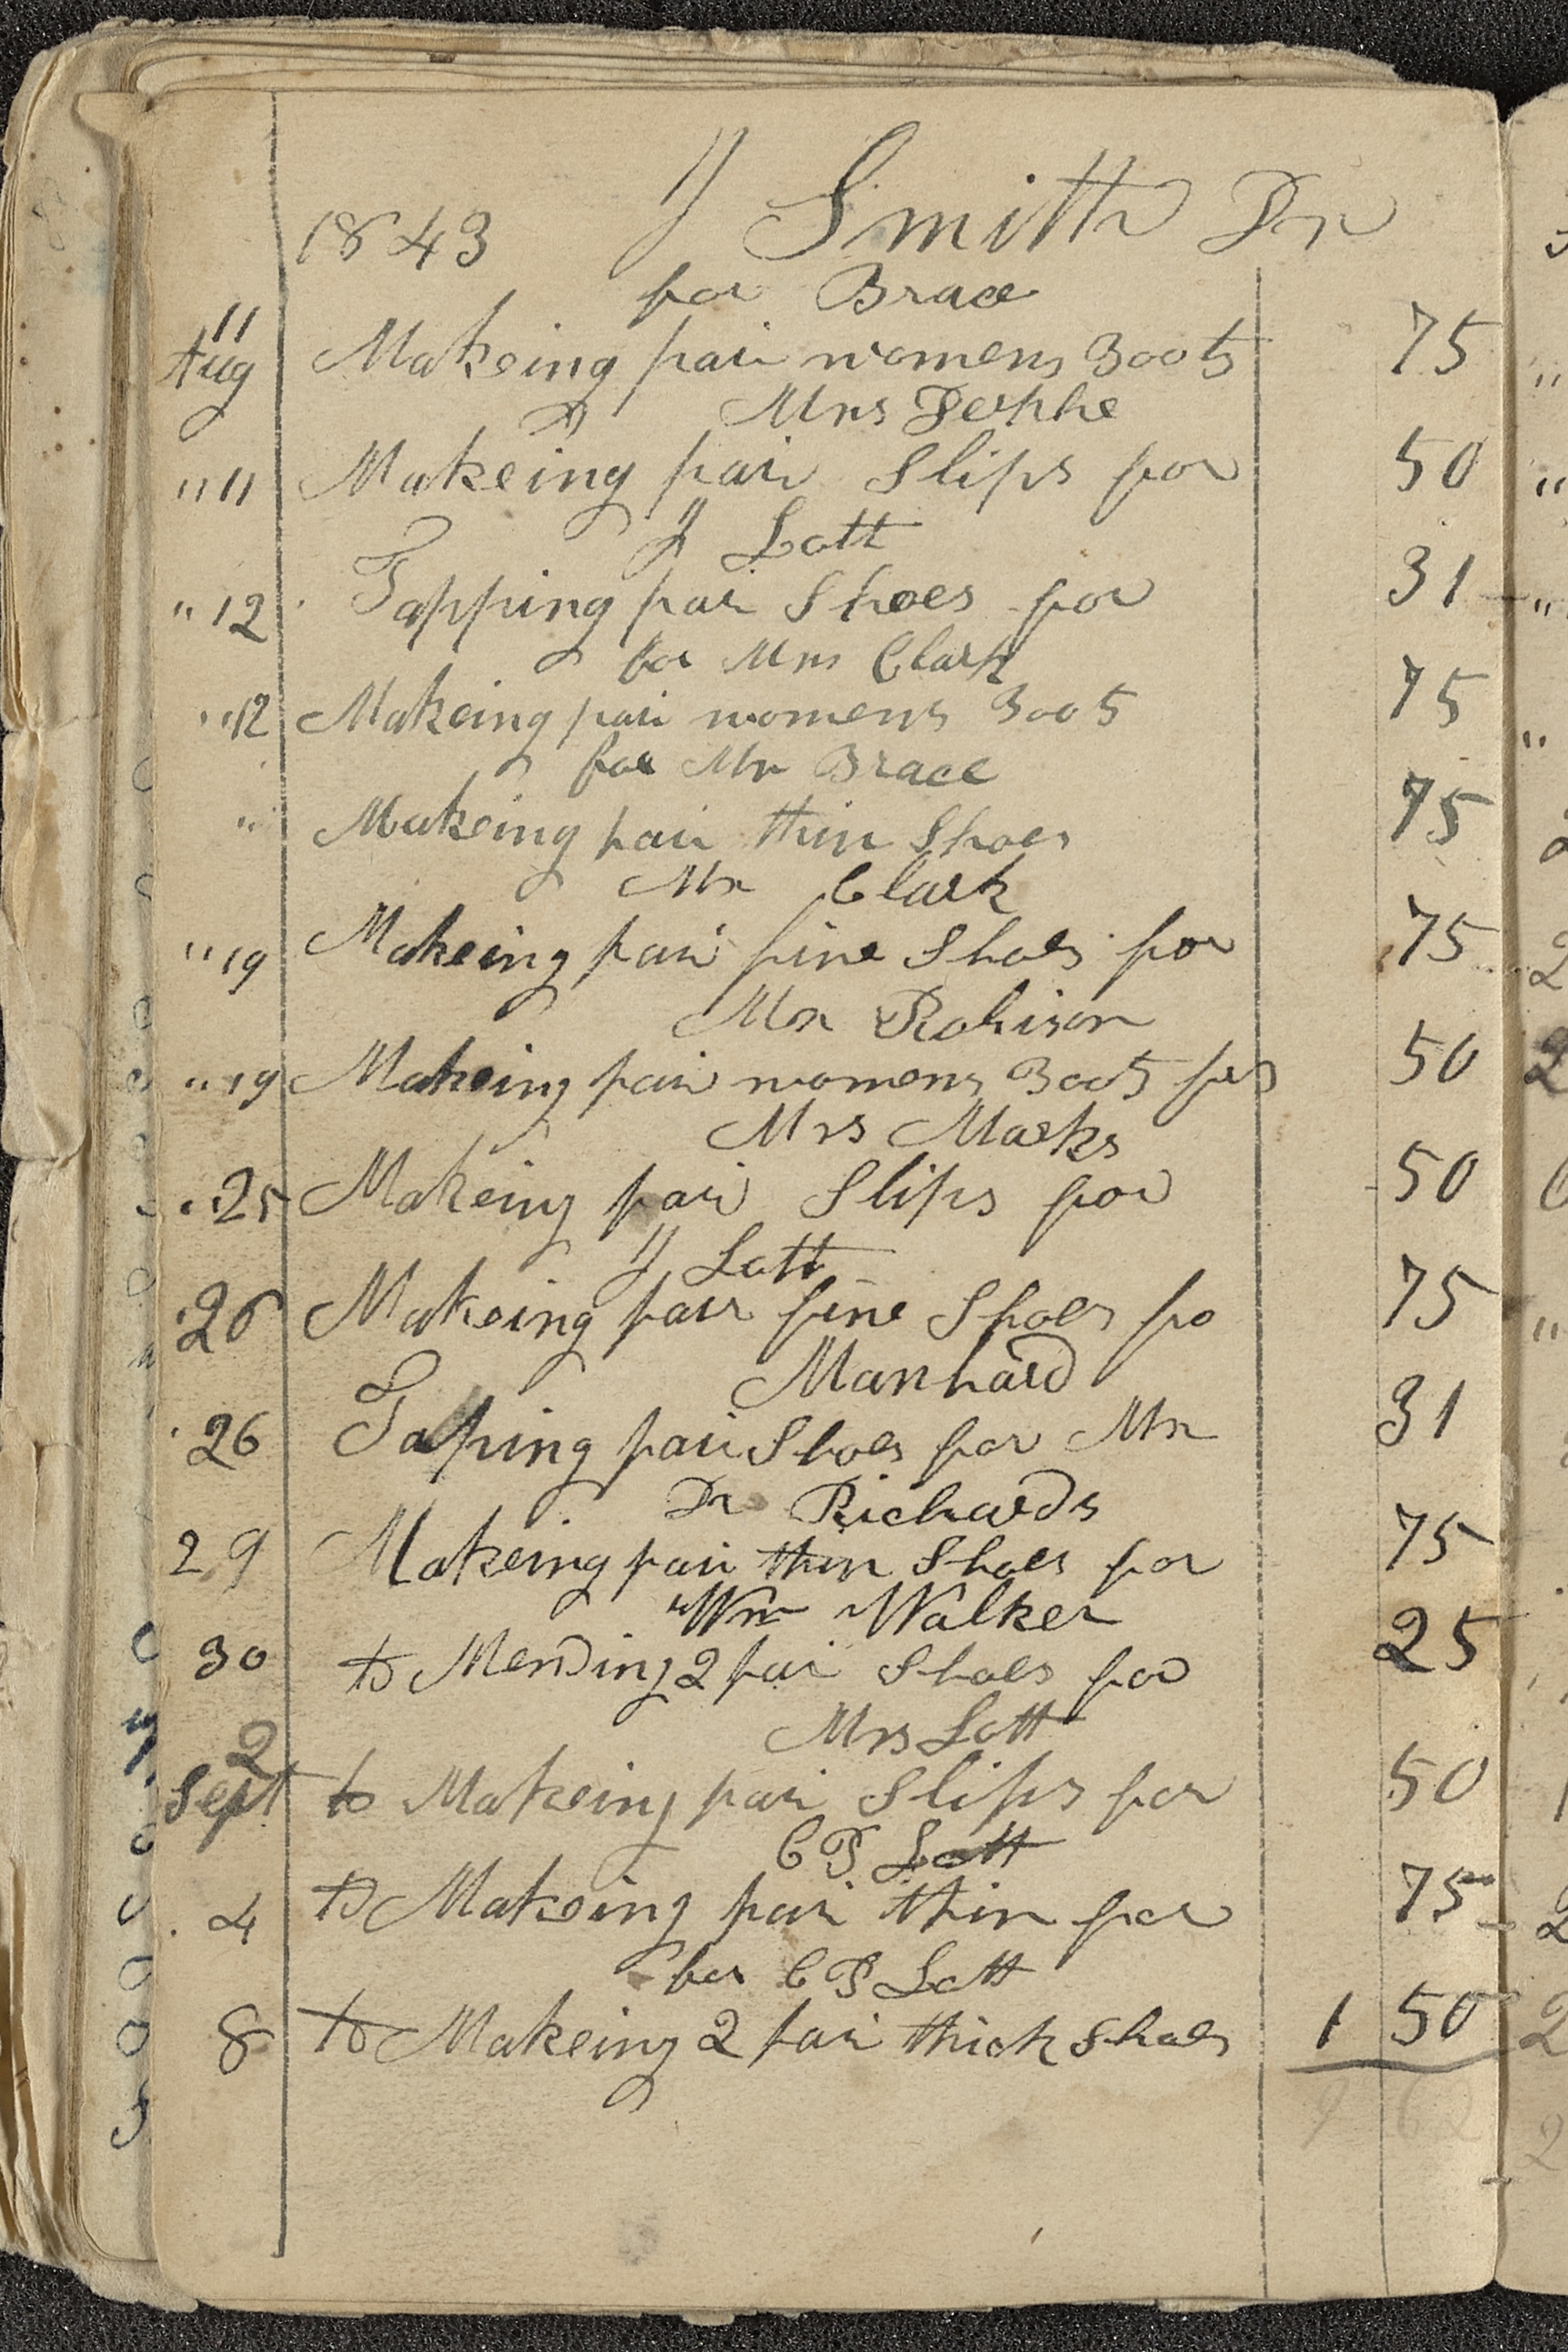 1843 J Smith Dr
for Brace
11
Aug Makeing pair womens Boots 75
Mrs
" 11 Makeing pair Slips for 50
J Lott
" 12 Tapping pair Shoes for 31
for Mrs Clark
" 12 Makeing pair womens Boots 75
for Mr Brace
" Makeing pair thin Shoes 75
Mr Clark
" 19 Makeing pair fine Shoes for 75
Mr Robison
" 19 Makeing pair womens Boots for 50
Mrs Marks
" 25 Makeing pair Slips for 50
J Lott
26 Makeing pair fine Shoes fo 75
Manhard
26 Taping pair Shoes for Mr 31
Dr Richards
29 Makeing pair thin Shoes for 75
Wm Walker
30 to Mending 2 pair Shoes for 25
Mrs Lott
2
Sept to Makeing pair Slips for 50
C P Lott
4 to Makeing pair thin for 75
for C P Lott
8 to Makeing 2 pair thick Shoes 1 50
9 62